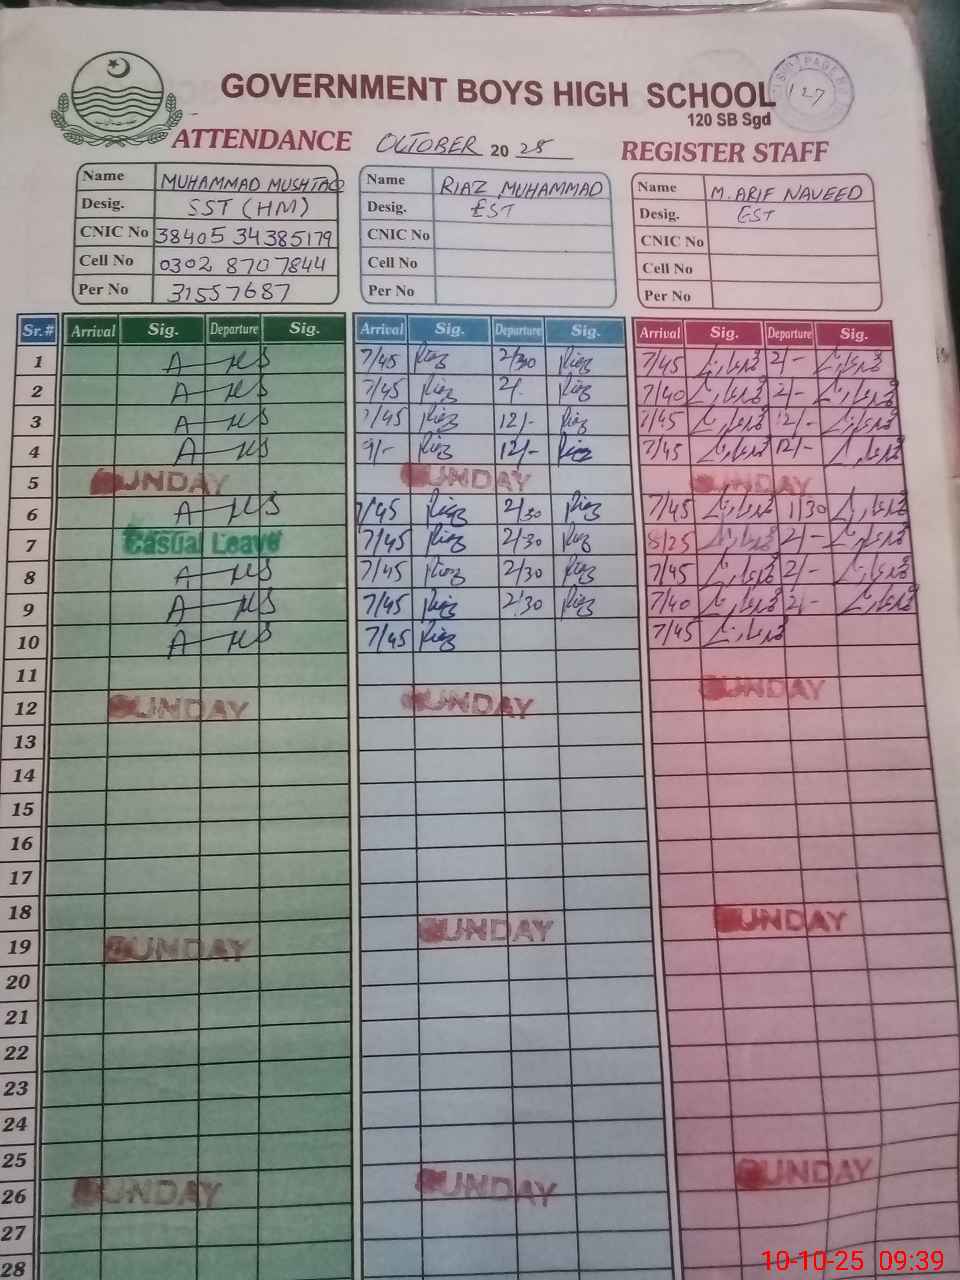 GOVERNMENT BOYS HIGH SCHOOL
120 SB Sgd
127
ATTENDANCE OCTOBER 20 25 REGISTER STAFF
Name MUHAMMAD MUSHTAQ Name RIAZ MUHAMMAD Name M. ARIF NAVEED
Desig. SST (HM) Desig. EST Desig. EST
CNIC No 38405 34385179 CNIC No CNIC No
Cell No 0302 8707844 Cell No Cell No
Per No 31557687 Per No Per No
Sr.# Arrival Sig. Departure Sig. Arrival Sig. Departure Sig. Arrival Sig. Departure Sig.
1 A 7/45 Riaz 2/30 Riaz 7/45 2/-
2 A 7/45 Riaz 2/- Riaz 7/40 2/-
3 A 7/45 Riaz 12/- Riaz 7/45 12/-
4 A 9/- Riaz 12/- Riaz 7/45 12/-
5 SUNDAY SUNDAY SUNDAY
6 A 7/45 Riaz 2/30 Riaz 7/45 1/30
7 Casual Leave 7/45 Riaz 2/30 Riaz 8/25 2/-
8 A 7/45 Riaz 2/30 Riaz 7/45 2/-
9 A 7/45 Riaz 2/30 Riaz 7/40 2/-
10 A 7/45 Riaz 7/45
11
12 SUNDAY SUNDAY SUNDAY
13
14
15
16
17
18
19 SUNDAY SUNDAY SUNDAY
20
21
22
23
24
25
26 SUNDAY SUNDAY SUNDAY
27
28
10-10-25 09:39